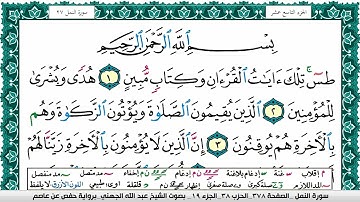 الجزء التاسع عشر سورة النمل ٢٧
بِسْمِ ٱللَّهِ ٱلرَّحْمَٰنِ ٱلرَّحِيمِ
طسٓ ۚ تِلْكَ ءَايَٰتُ ٱلْقُرْءَانِ وَكِتَابٍ مُّبِينٍ ١ هُدًى وَبُشْرَىٰ
لِلْمُؤْمِنِينَ ٢ ٱلَّذِينَ يُقِيمُونَ ٱلصَّلَوٰةَ وَيُؤْتُونَ ٱلزَّكَوٰةَ وَهُم
بِٱلْءَاخِرَةِ هُمْ يُوقِنُونَ ٣ إِنَّ ٱلَّذِينَ لَا يُؤْمِنُونَ بِٱلْءَاخِرَةِ زَيَّنَّا لَهُمْ
سورة النمل , الصفحة ٣٧٨ الجزء ١٩ بصوت الشيخ عبد الله الجهني برواية حفص عن عاصم